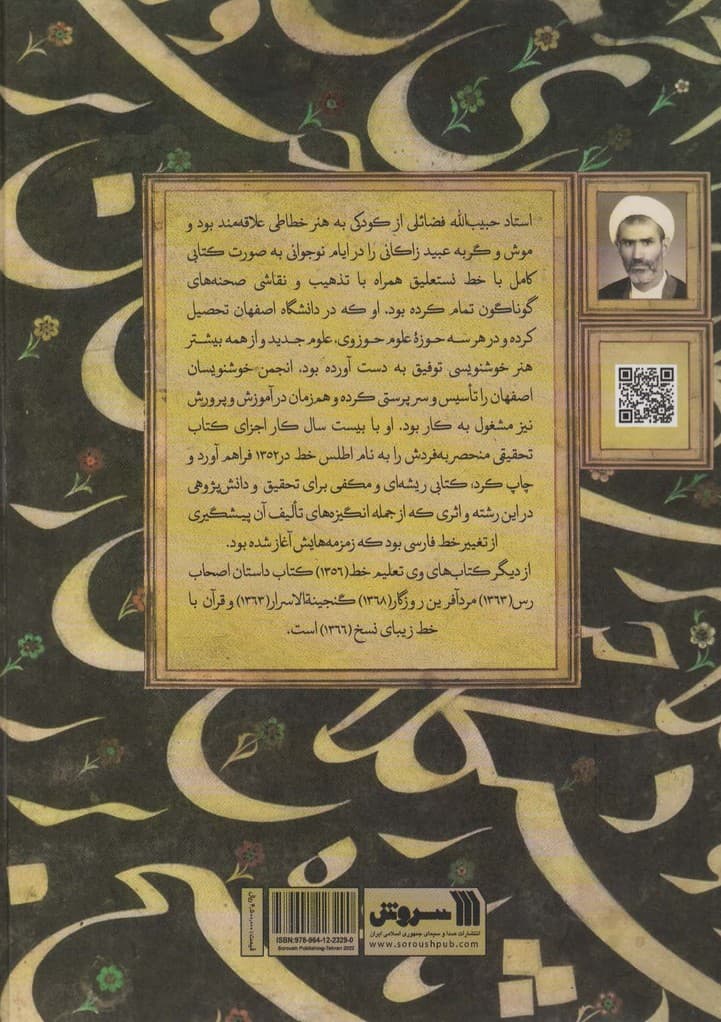 استاد حبیب‌الله فضائلی از کودکی به هنر خطاطی علاقه‌مند بود و
موش و گربه عبید زاکانی را در ایام نوجوانی به صورت کتابی
کامل با خط نستعلیق همراه با تذهیب و نقاشی صحنه‌های
گوناگون تمام کرده بود. او که در دانشگاه اصفهان تحصیل
کرده و در هر سه حوزهٔ علوم حوزوی، علوم جدید و از همه بیشتر
هنر خوشنویسی توفیق به دست آورده بود، انجمن خوشنویسان
اصفهان را تأسیس و سرپرستی کرده و همزمان در آموزش و پرورش
نیز مشغول به کار بود. او با بیست سال کار اجزای کتاب
تحقیقی منحصربه‌فردش را به نام اطلس خط در ۱۳۵۲ فراهم آورد و
چاپ کرد؛ کتابی ریشه‌ای و مکفی برای تحقیق و دانش‌پژوهی
در این رشته و اثری که از جمله انگیزه‌های تألیف آن پیشگیری
از تغییر خط فارسی بود که زمزمه‌هایش آغاز شده بود.
از دیگر کتاب‌های وی تعلیم خط (۱۳۵۶) کتاب داستان اصحاب
رس (۱۳۶۳) مردآفرین روزگار (۱۳۶۸) گنجینةالاسرار (۱۳۶۳) و قرآن با
خط زیبای نسخ (۱۳۶۶) است.
سروش
انتشارات صدا و سیمای جمهوری اسلامی ایران
www.soroushpub.com
ISBN:978-964-12-2329-0
Soroush Publishing-Tehran 2022